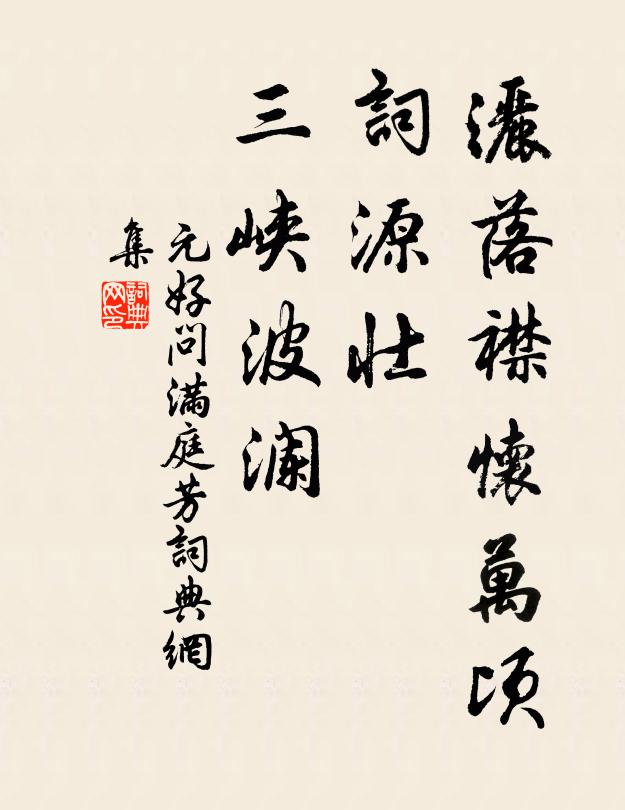 灑落襟懷萬頃
詞源壯
三峽波瀾
元好問滿庭芳詞典網
集
詞典網印